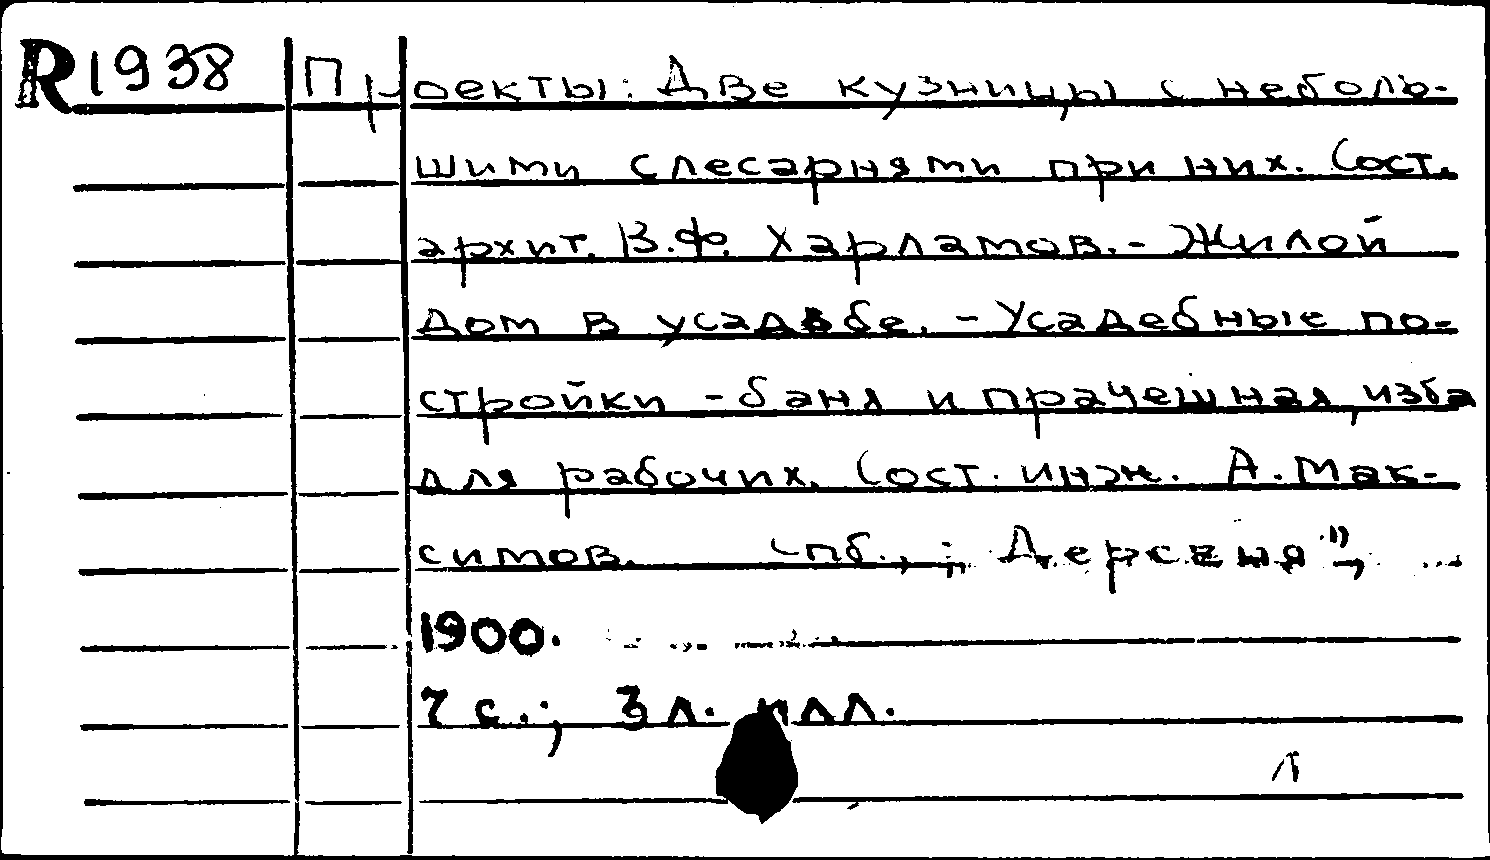 R1938 Проекты: Две кузницы с неболь-
шими слесарнями при них. Сост.
архит. В.Ф. Харламов. - Жилой
дом в усадьбе. - Усадебные по-
стройки - баня и прачешная, изба
для рабочих. Сост. инж. А. Мак-
симов. Спб., "Деревня",
1900.
7 с.; 3 л. илл.